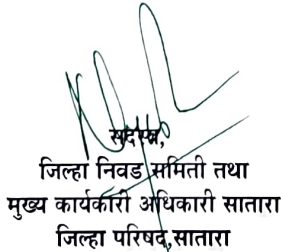 सदस्य,
जिल्हा निवड समिती तथा
मुख्य कार्यकारी अधिकारी सातारा
जिल्हा परिषद,सातारा